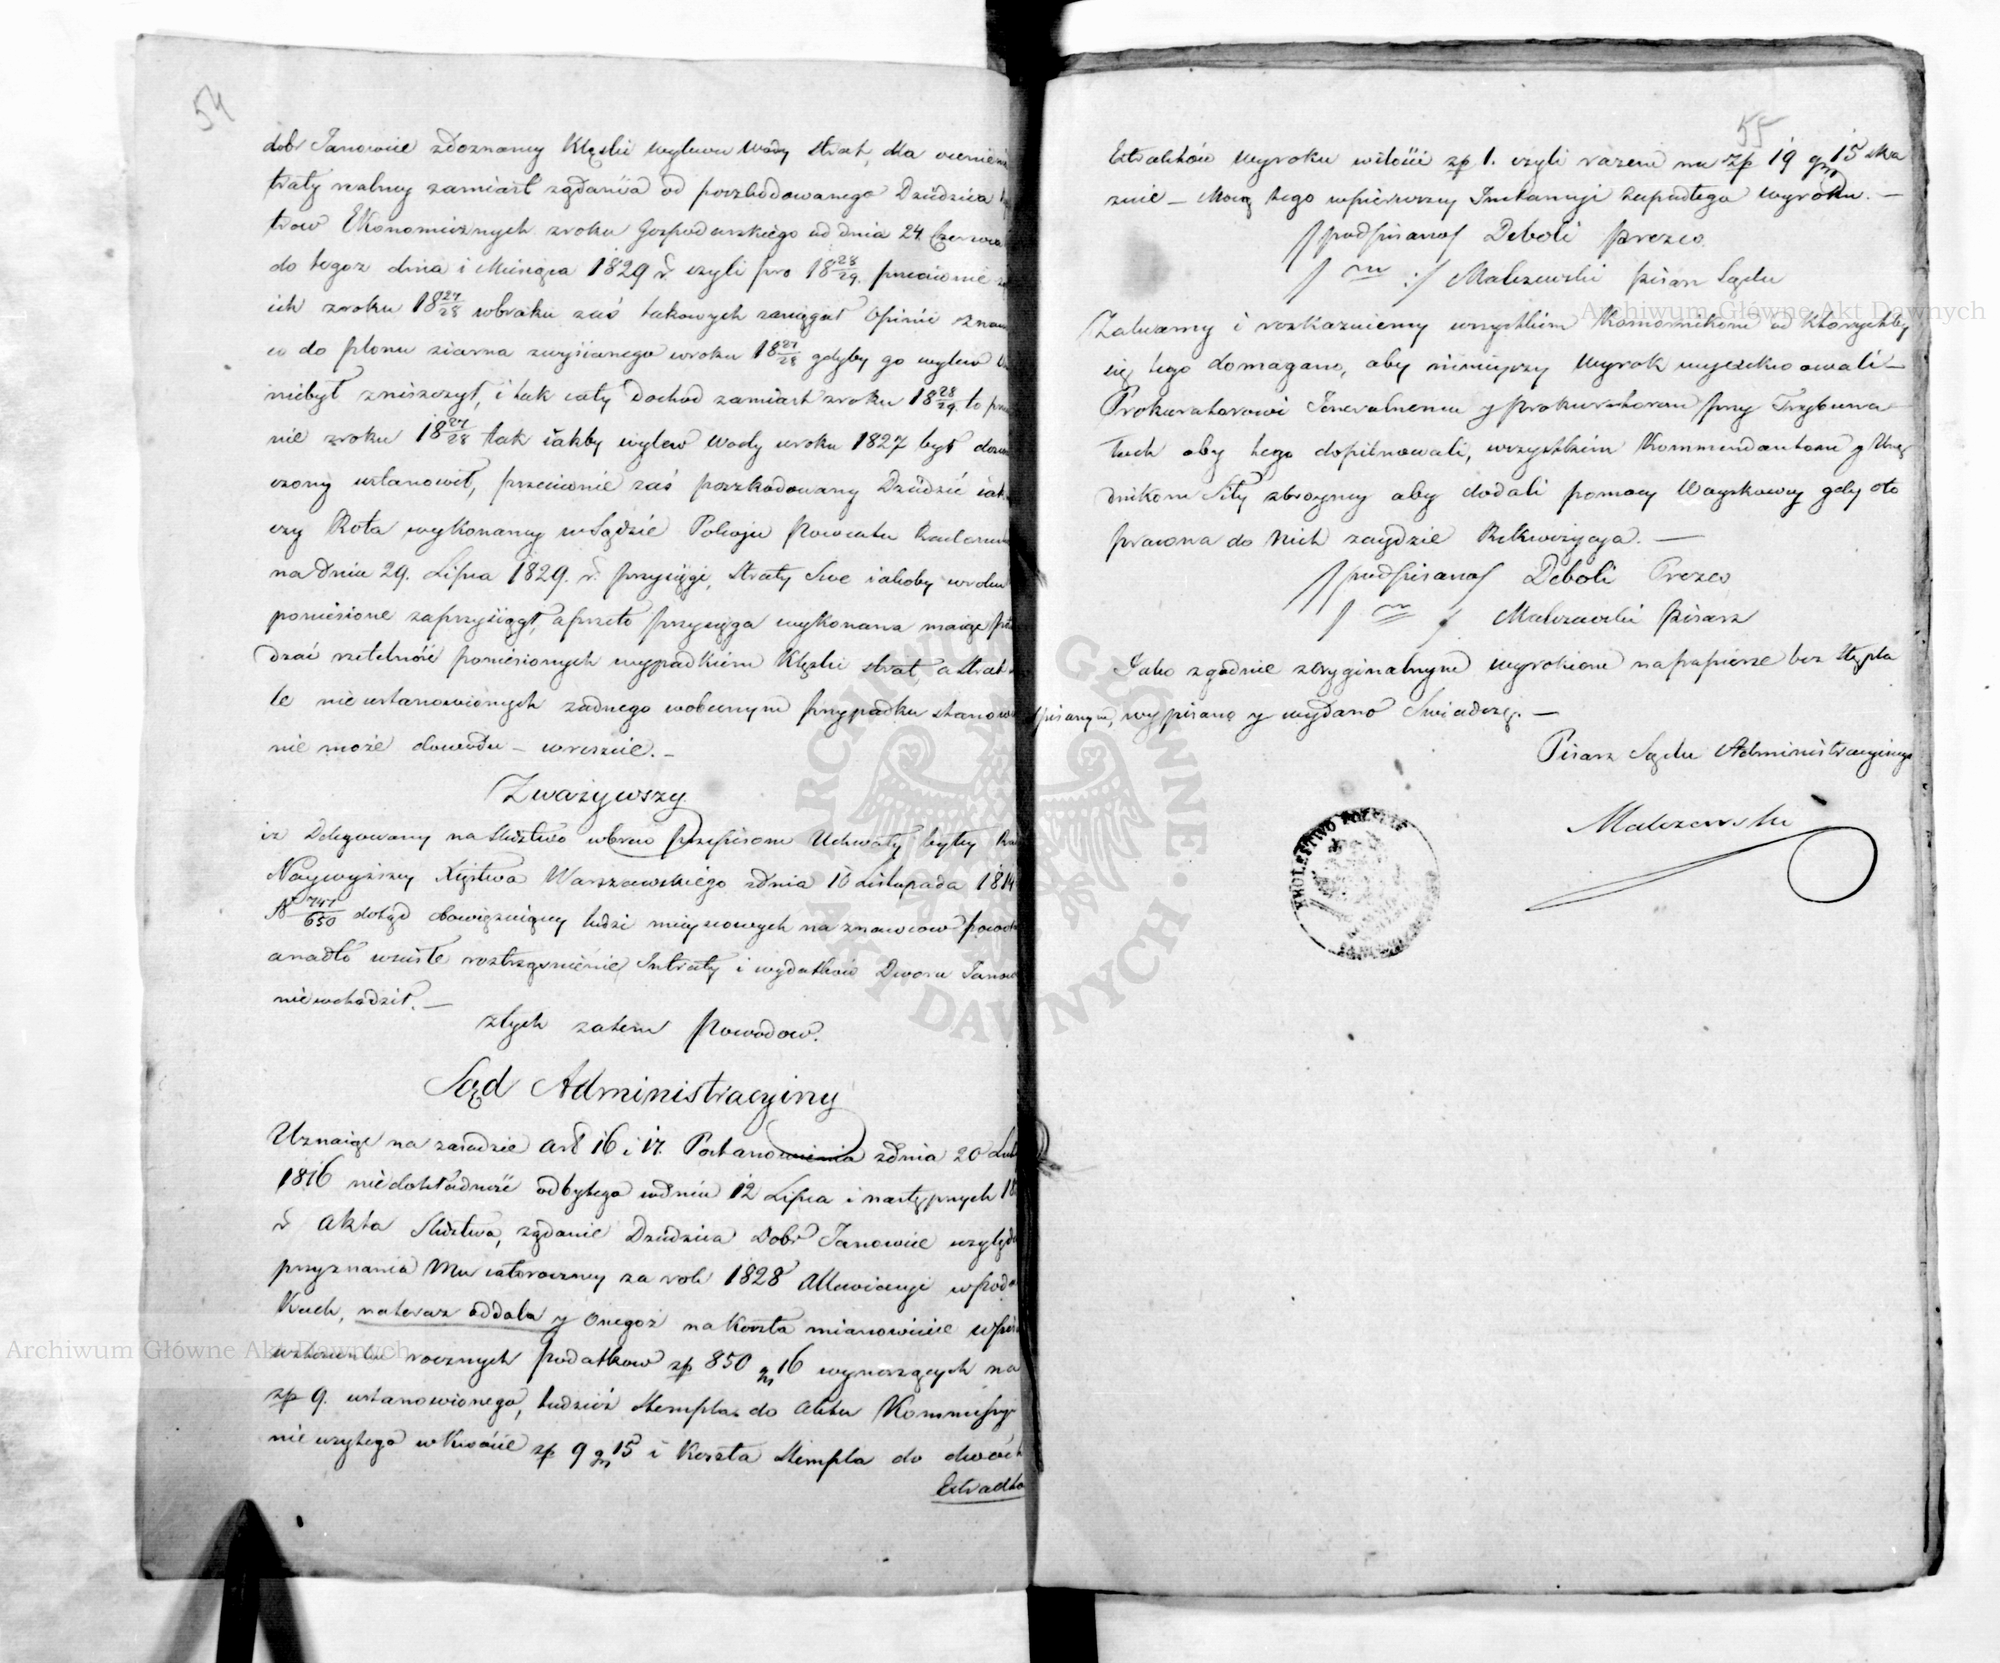 54
dobr Janowiec zdoznaney Klęski wylewu wody strat, dla ocenienia
straty realney zamiast żądania od poszkodowanego Dziedzica
trow Ekonomicznych z roku Gospodarskiego od dnia 24 Czerwca
do tegoż dnia i Miesiąca 1829 r. czyli pro 18 28/29. przeciwnie
ich z roku 18 27/28 w braku zaś takowych zaciągał Opinii znaw
co do plonu ziarna zwysianego w roku 18 27/28 gdyby go wylew
niebył zniszczył, i tak cały Dochód zamiast z roku 18 28/29. to prze
nie z roku 18 27/28 tak iakby wylew wody w roku 1827 był
czony ustanowił, przeciwnie zaś poszkodowany Dziedzic iak
czy Rota wykonaney w Sądzie Pokoju Powiatu Radom
na dniu 29. Lipca 1829. r. przysięgi, straty Swe iakoby w roku
poniesione zaprzysiągł, a przeto przysięga wykonana maiąc
dzać rzetelność poniesionych wypadkiem Klęski strat, a strat
le nie ustanowionych żadnego w obecnym przypadku stanow
nie może dowodu – wreszcie. –
Zważywszy
iż Delegowany na śledztwo wbrew Przepisom Uchwały byłey Rad
Naywyższey Xięstwa Warszawskiego z dnia 10 Listopada 1814
N 747/650 dotąd obowiązuiącey ludzi mieyscowych na znawcow powoł
a nadto w ścisłe roztrząśnienie Intraty i wydatków Dworu Janow
nie wchodził. –
z tych zatem Powodow.
Sąd Administracyiny
Uznaiąc na zasadzie art 16 i 17. Postanowienia z dnia 20 Lut
1816 niedokładność odbytego w dniu 12 Lipca i następnych 18
r. Aktu śledztwa, żądanie Dziedzica Dobr Janowiec wzglę
przyznania Mu całoroczney za rok 1828 Allewiacyi w poda
tkach, na teraz oddala y Onegoż na Koszta mianowicie wpisu
w stosunku rocznych podatkow zp 850 gr 16 wynoszących na
zp 9. ustanowionego, tudzież stempla do Aktu Kommissyi
nie użytego w Kwocie zp 9 gr 15 i Koszta stempla do dwóch
Extraktów
55
Extraktów wyroku w ilości zp 1. czyli razem na zp 19 gr 15 ska
zuie – Mocą tego w pierwszey Instancyi zapadłego wyroku. –
/podpisano/ Deboli Prezes
/ – :/ Malczewski Pisarz Sądu
Zalecamy i rozkazuiemy wszystkim Komornikom od Ktorychby
się tego domagano, aby ninieyszy Wyrok wyexekwowali –
Prokuratorowi Jeneralnemu y Prokuratorom przy Trybuna
łach aby tego dopilnowali, wszystkim Kommendantom y Urzę
dnikom Siły zbroyney aby dodali pomocy Woyskowey gdy oto
prawna do Nich zaydzie Rekwizycya. –
/podpisano/ Deboli Prezes
/ – / Malczewski Pisarz
Jako zgodnie z oryginalnym wyrokiem na papierze bez stępla
spisanym, wypisano y wydano Świadczę. –
Pisarz Sądu Administracyinego
Malczewski
KRÓLESTWO POLSKIE
ARCHIWUM GŁÓWNE AKT DAWNYCH
Archiwum Główne Akt Dawnych
Archiwum Główne Akt Dawnych